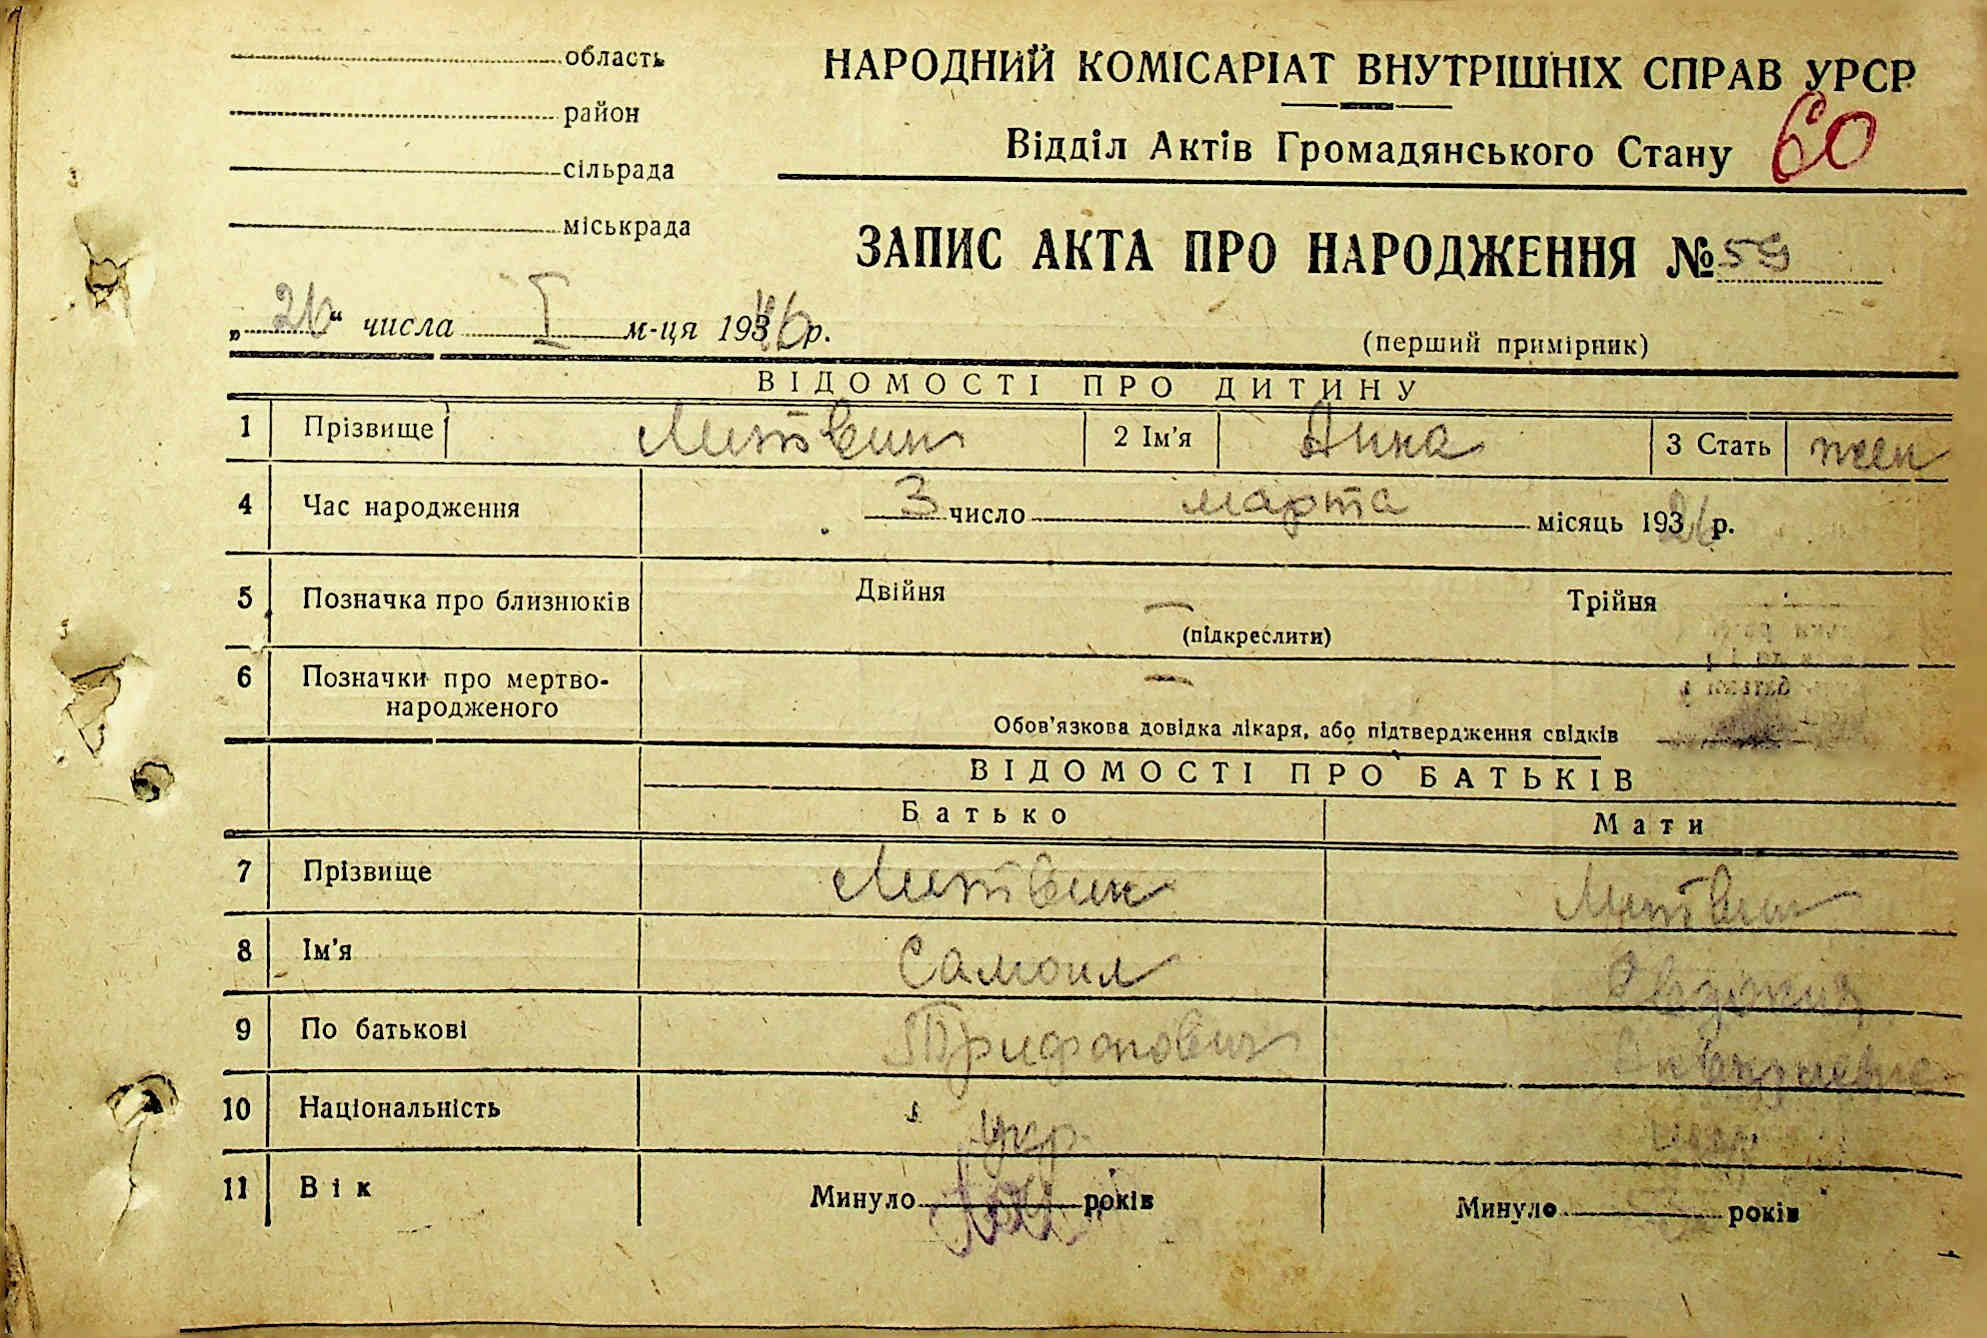 область
район
сільрада
міськрада
НАРОДНИЙ КОМІСАРІАТ ВНУТРІШНІХ СПРАВ УРСР
Відділ Актів Громадянського Стану 60
ЗАПИС АКТА ПРО НАРОДЖЕННЯ № 59
„26“ числа I м-ця 1946 р.
(перший примірник)
ВІДОМОСТІ ПРО ДИТИНУ
1 Прізвище Литвин 2 Ім'я Анна 3 Стать жен
4 Час народження 3 число марта місяць 193 26 р.
5 Позначка про близнюків Двійня — Трійня
(підкреслити)
6 Позначки про мертво-
народженого —
Обов'язкова довідка лікаря, або підтвердження свідків
ВІДОМОСТІ ПРО БАТЬКІВ
Батько Мати
7 Прізвище Литвин Литвин
8 Ім'я Самоил
9 По батькові Трифонович
10 Національність укр. укр
11 Вік Минуло років Минуло років